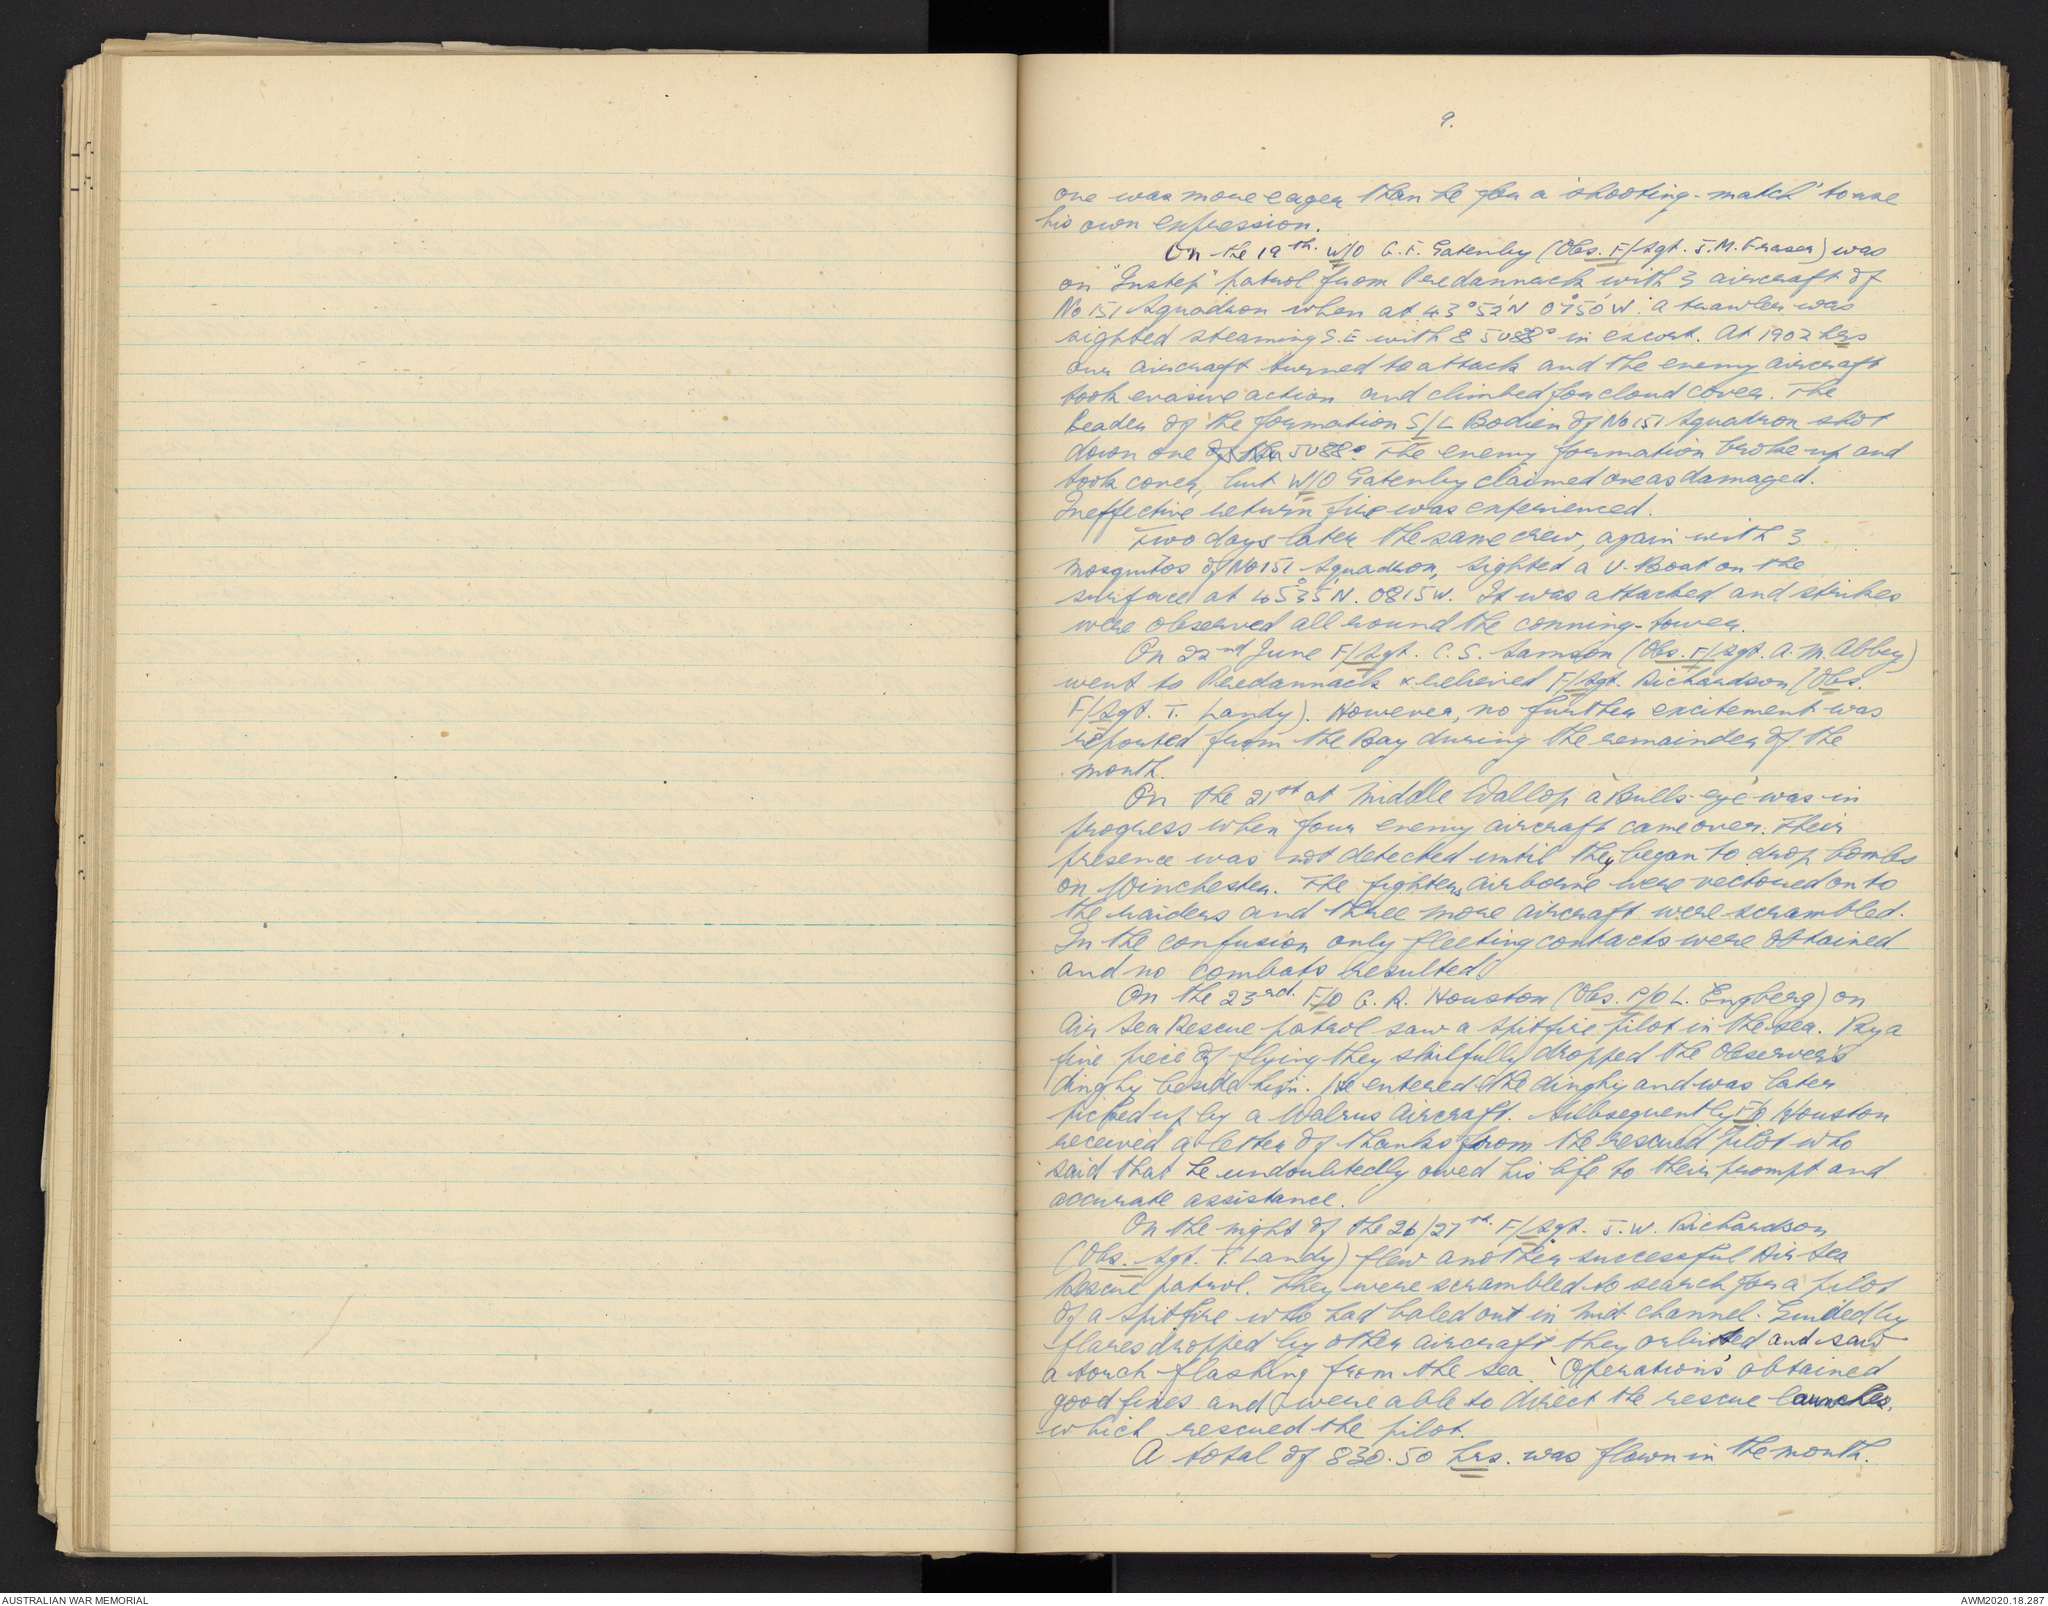 9.
one was more eager than he for a 'shooting-match' to use
his own expression.
On the 19th. W/O G. F. Gatenby (Obs. F/Sgt. J. M. Fraser) was
on "Instep" patrol from Predannack with 3 aircraft of
No 151 Squadron when at 43°52'N 0950'W. a trawler was
sighted steaming S.E with 8 JU88s in escort. At 1902 hrs
our aircraft turned to attack and the enemy aircraft
took evasive action and climbed for cloud cover. The
leader of the formation S/L Bodien of No 151 Squadron shot
down one of the JU88s. The enemy formation broke up and
took cover, but W/O Gatenby claimed one as damaged.
Ineffective return fire was experienced.
Two days later the same crew, again with 3
mosquitos of No 151 Squadron, sighted a U-Boat on the
surface at 45°35'N. 0815W. It was attacked and strikes
were observed all round the conning-tower.
On 22nd June F/Sgt. C. S. Samson (Obs. F/Sgt. A. M. Abbey)
went to Predannack & relieved F/Sgt. Richardson (Obs.
F/Sgt. T. Landy). However, no further excitement was
reported from the Bay during the remainder of the
month.
On the 21st at Middle Wallop a 'Bulls-eye' was in
progress when four enemy aircraft came over. Their
presence was not detected until they began to drop bombs
on Winchester. The fighters airborne were vectored on to
the raiders and three more aircraft were scrambled.
In the confusion only fleeting contacts were obtained
and no combats resulted.
On the 23rd. F/O G. R. Houston (Obs. P/O L. Engberg) on
Air Sea Rescue patrol saw a Spitfire pilot in the sea. By a
fine piece of flying they skilfully dropped the Observer's
dinghy beside him. He entered the dinghy and was later
picked up by a Walrus Aircraft. Subsequently F/O Houston
received a letter of thanks from the rescued pilot who
said that he undoubtedly owed his life to their prompt and
accurate assistance.
On the night of the 26/27th. F/Sgt. J. W. Richardson
(Obs. Sgt. T. Landy) flew another successful Air Sea
Rescue patrol. They were scrambled to search for a pilot
of a Spitfire who had baled out in mid channel. Guided by
flares dropped by other aircraft they orbitted and saw
a torch flashing from the sea. 'Operations' obtained
good fixes and were able to direct the rescue launches,
which rescued the pilot.
A total of 830.50 hrs. was flown in the month.
AUSTRALIAN WAR MEMORIAL
AWM2020.18.287